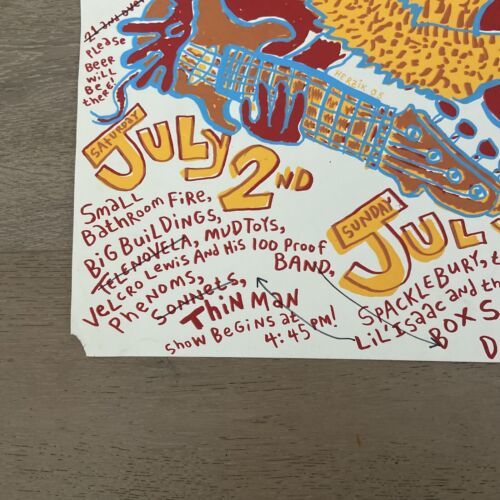 21 and over
Please
Beer
will
Be
there!
HERZIK 05
SATURDAY
JULY 2ND
Small
Bathroom Fire,
Big Buildings,
Telenovela, Mudtoys,
Velcro Lewis And His 100 Proof
Band,
Phenoms,
Sonnets,
Thin Man
Show Begins at
4:45 PM!
SUNDAY
JUL
Spacklebury, t
Lil' Isaac and th
Box S
D